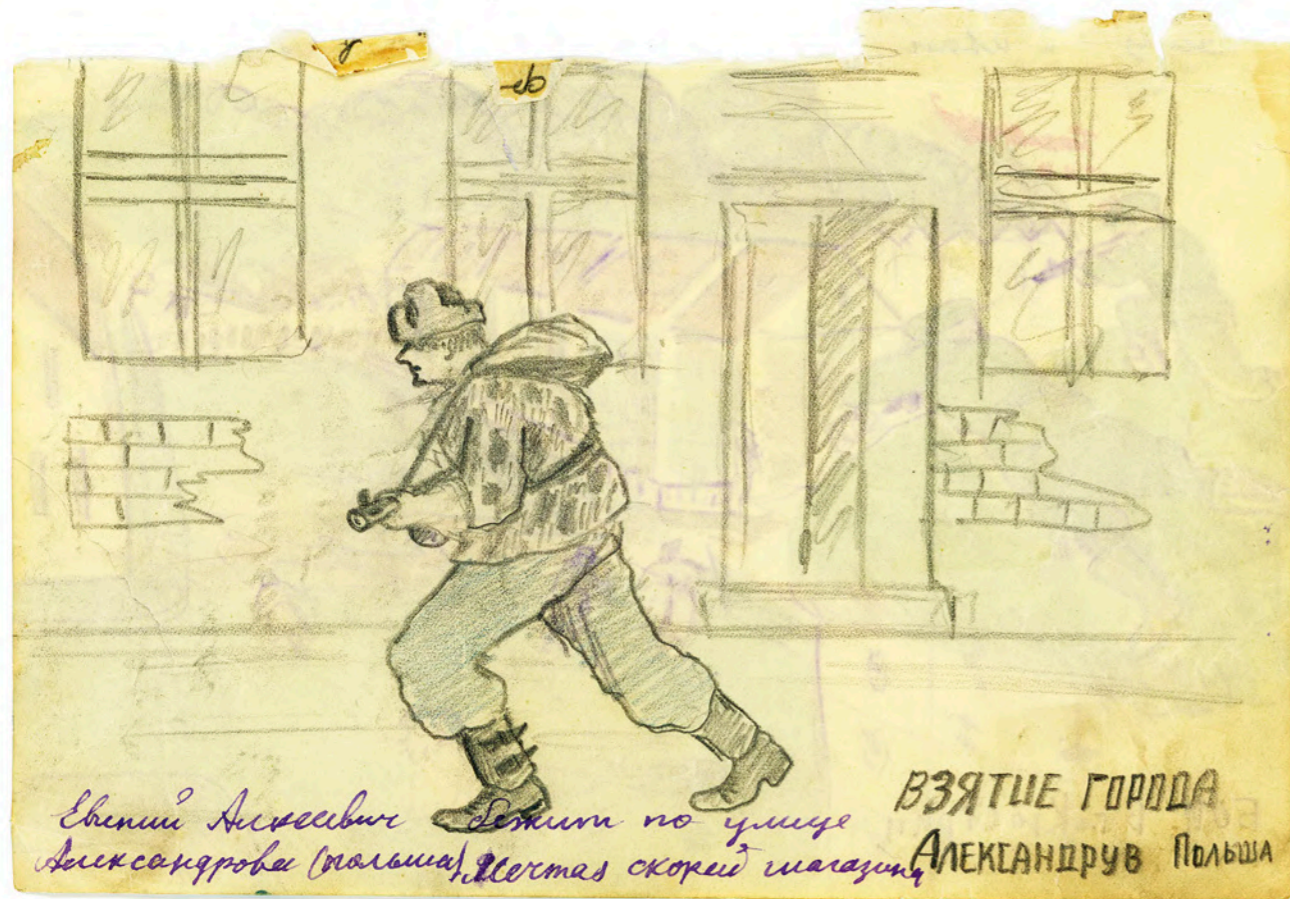 Евгений Алексеевич бежит по улице
Александрова (польша) Мечтая скорей магазин
ВЗЯТИЕ ГОРОДА
АЛЕКСАНДРУВ ПОЛЬША